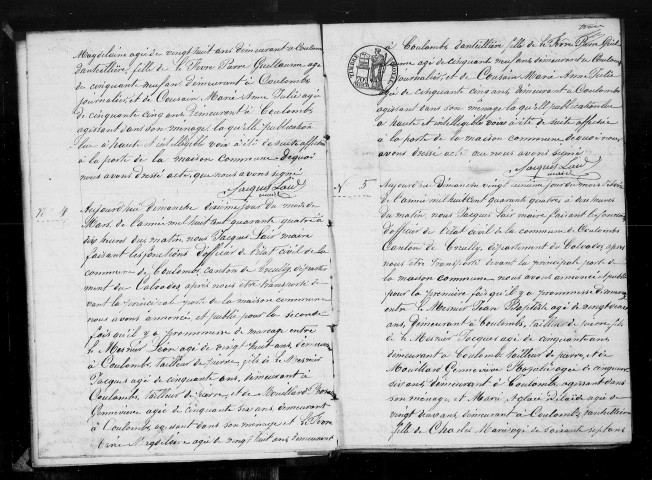 Magdelaine agé de vingt huit ans demeurant à Coulomb
dantellière, fille de le Fevre Pierre Guillaume age
de cinquante neuf ans demeurant à Coulombs
journalier, et de Cousain Marie Anne Julie agé
de cinquante cinq ans demeurant à Coulombs
agissant dans son ménage laquelle publication
lue à haute et intelligible voix à été de suite affichée
à la porte de la maison commune dequoi
nous avons dressé acte, que nous avons signé
Jacques Lair
maire
N 4
Aujourd'hui Dimanche dixième jour du mois de
Mars, de l'année mil huit cent quarante quatre à
dix heures du matin, nous Jacques Lair maire
faisant les fonctions d'officier de l'état civil de la
commune de Coulomb, canton de Creully, département
du Calvados, après nous être transporté devant
la principal porte de la maison commune
nous avons annoncé et publié pour la seconde
fois qu'il y a promesse de mariage entre
le Mesnier Léon agé de vingt huit ans, demeurant
à Coulomb, tailleur de pierre, fils de le Mesnier
Jacques agé de cinquante ans, demeurant à
Coulombs tailleur de pierre, et de Mouillard Rosalie
Genneviève agée de cinquante six ans demeurant
à Coulomb agissant dans son ménage et le Fevre
Magdelaine agée de vingt huit ans demeurant
à Coulombs dantellière fille de le Fevre Pierre Guil
aume agé de cinquante neuf ans demeurant à Coulomb
journalier, et de Cousain Marie Anne Julie
agé de cinquante cinq ans, demeurant à Coulomb
agissant dans son ménage laquelle publication lue
a haute et intelligible voix à été de suite affichée
à la porte de la maison commune dequoi nous
avons dressé acte que nous avons signé
Jacques Lair
maire
N 5
Aujourd'hui Dimanche vingt
de l'année mil huit cent quarante quatre à dix heures
du matin, nous Jacques Lair maire faisant les fonctions
d'officier de l'état civil de la commune de Coulombs
Canton de Creully, département du Calvados, après
nous être transporté devant la principale porte de
la maison commune nous avons annoncé et publié
pour la première fois qu'il y a promesse de mariage
entre le Mesnier Jean Baptiste agé de vingt
ans, demeurant à Coulomb, tailleur de pierre, fils
de le Mesnier Jacques agé de cinquante ans
demeurant à Coulomb tailleur de pierre, et de
Mouillard Genneviève Rosalie agée de cinquante
six ans demeurant à Coulomb agissant dans
son ménage, et Marie Aglaé Délaïde agé de
vingt ans, demeurant à Coulomb, dantellière
fille de Charles Marie agé de soixante sept ans